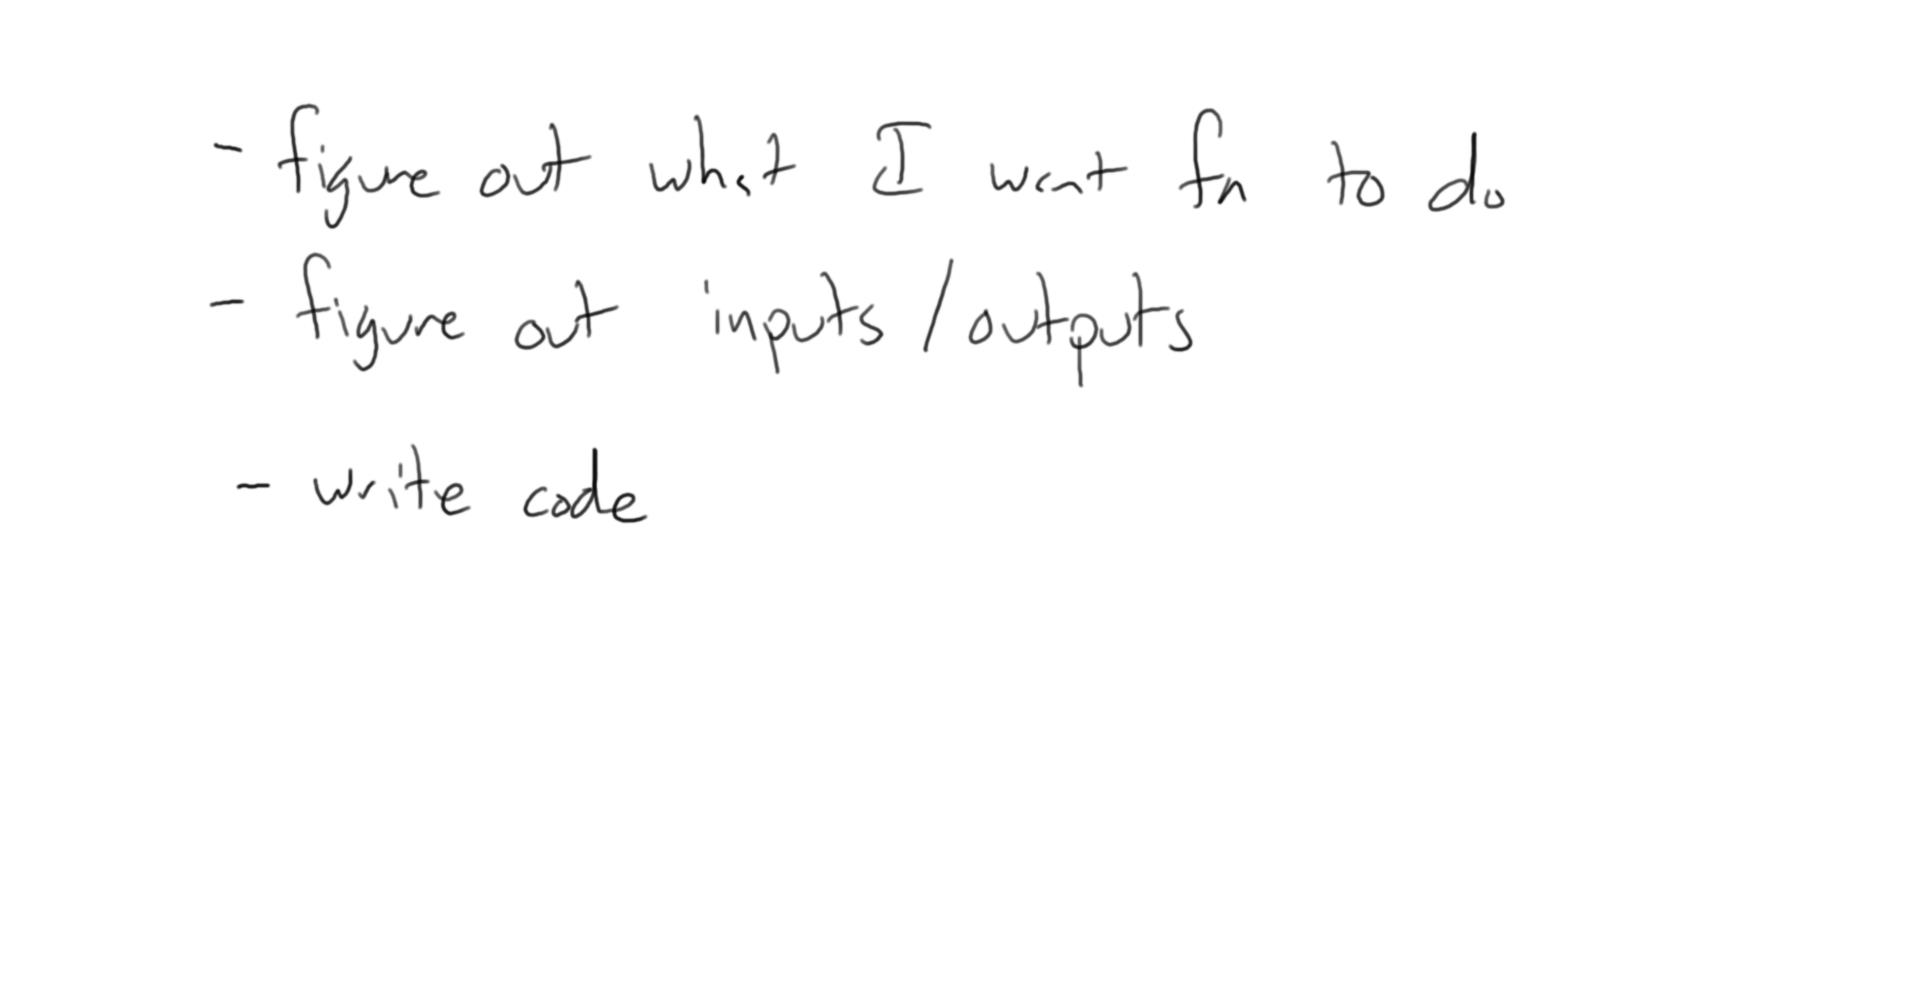 - figure out what I want fn to do
- figure out inputs/outputs
- write code